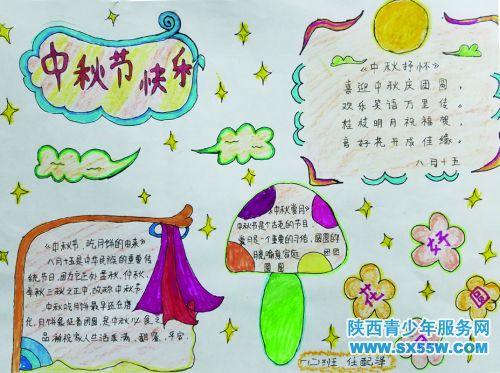 中秋节快乐
《中秋抒怀》
喜迎中秋庆团圆，
欢乐笑语万里传。
桂枝明月祝福贺，
好花开成佳缘。
八月十五
《中秋节，吃月饼的由来》
八月十五是中华民族的重要传
统节日，因为它正处孟秋、仲秋、
季秋三秋之正中，故称中秋节。
中秋吃月饼最早还在唐
代，月饼象征着团圆，是中秋必食之
品，祝福家人生活美满、甜蜜、平安。
《中秋赏月》
中秋节是个古老的节日，
赏月是一个重要的习俗，圆圆的
月亮家庭
团圆
好
花
圆
班 任
陕西青少年服务网
www.sx55w.com